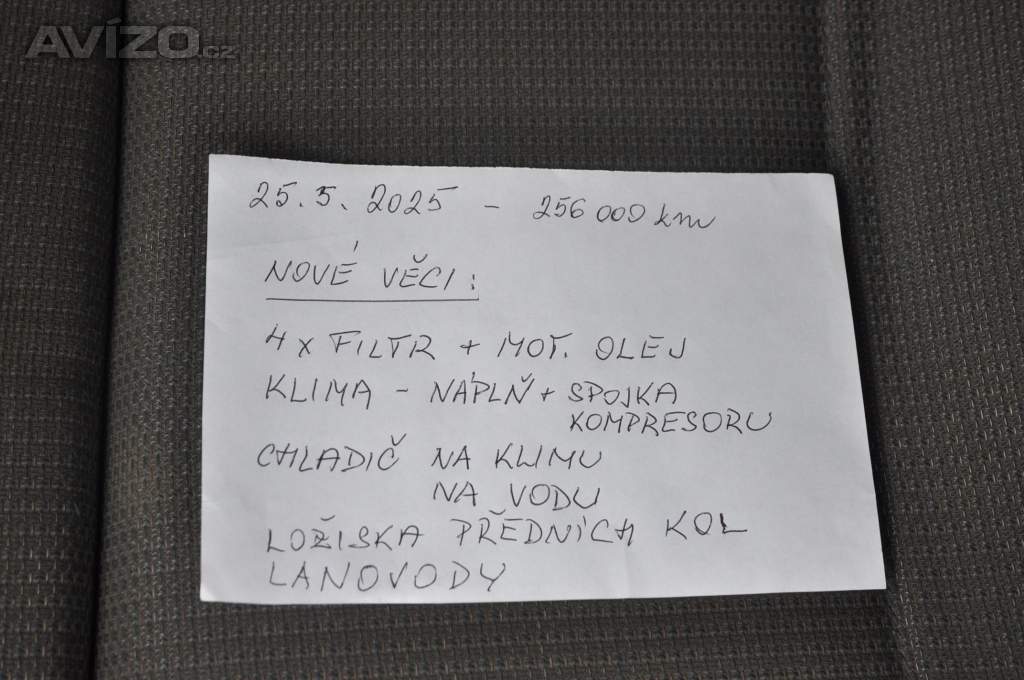 AVÍZO.cz
25.5.2025 - 256 000 km
NOVÉ VĚCI:
4x FILTR + MOT. OLEJ
KLIMA - NÁPLŇ + SPOJKA
KOMPRESORU
CHLADIČ NA KLIMU
NA VODU
LOŽISKA PŘEDNÍCH KOL
LANOVODY